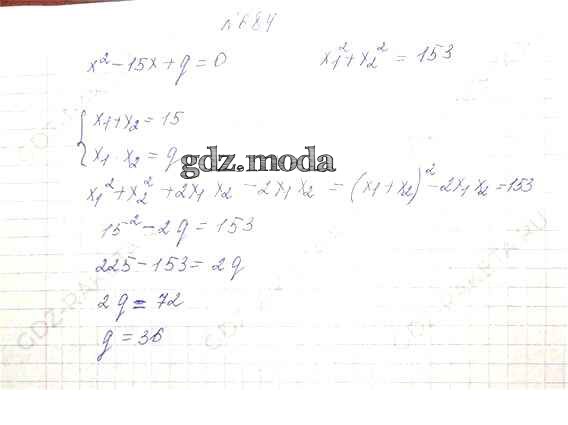 №684
x² - 15x + q = 0    x₁² + x₂² = 153
x₁ + x₂ = 15
x₁ · x₂ = q
gdz.moda
x₁² + x₂² + 2x₁ x₂ - 2x₁ x₂ = (x₁ + x₂)² - 2x₁ x₂ = 153
15² - 2q = 153
225 - 153 = 2q
2q = 72
q = 36